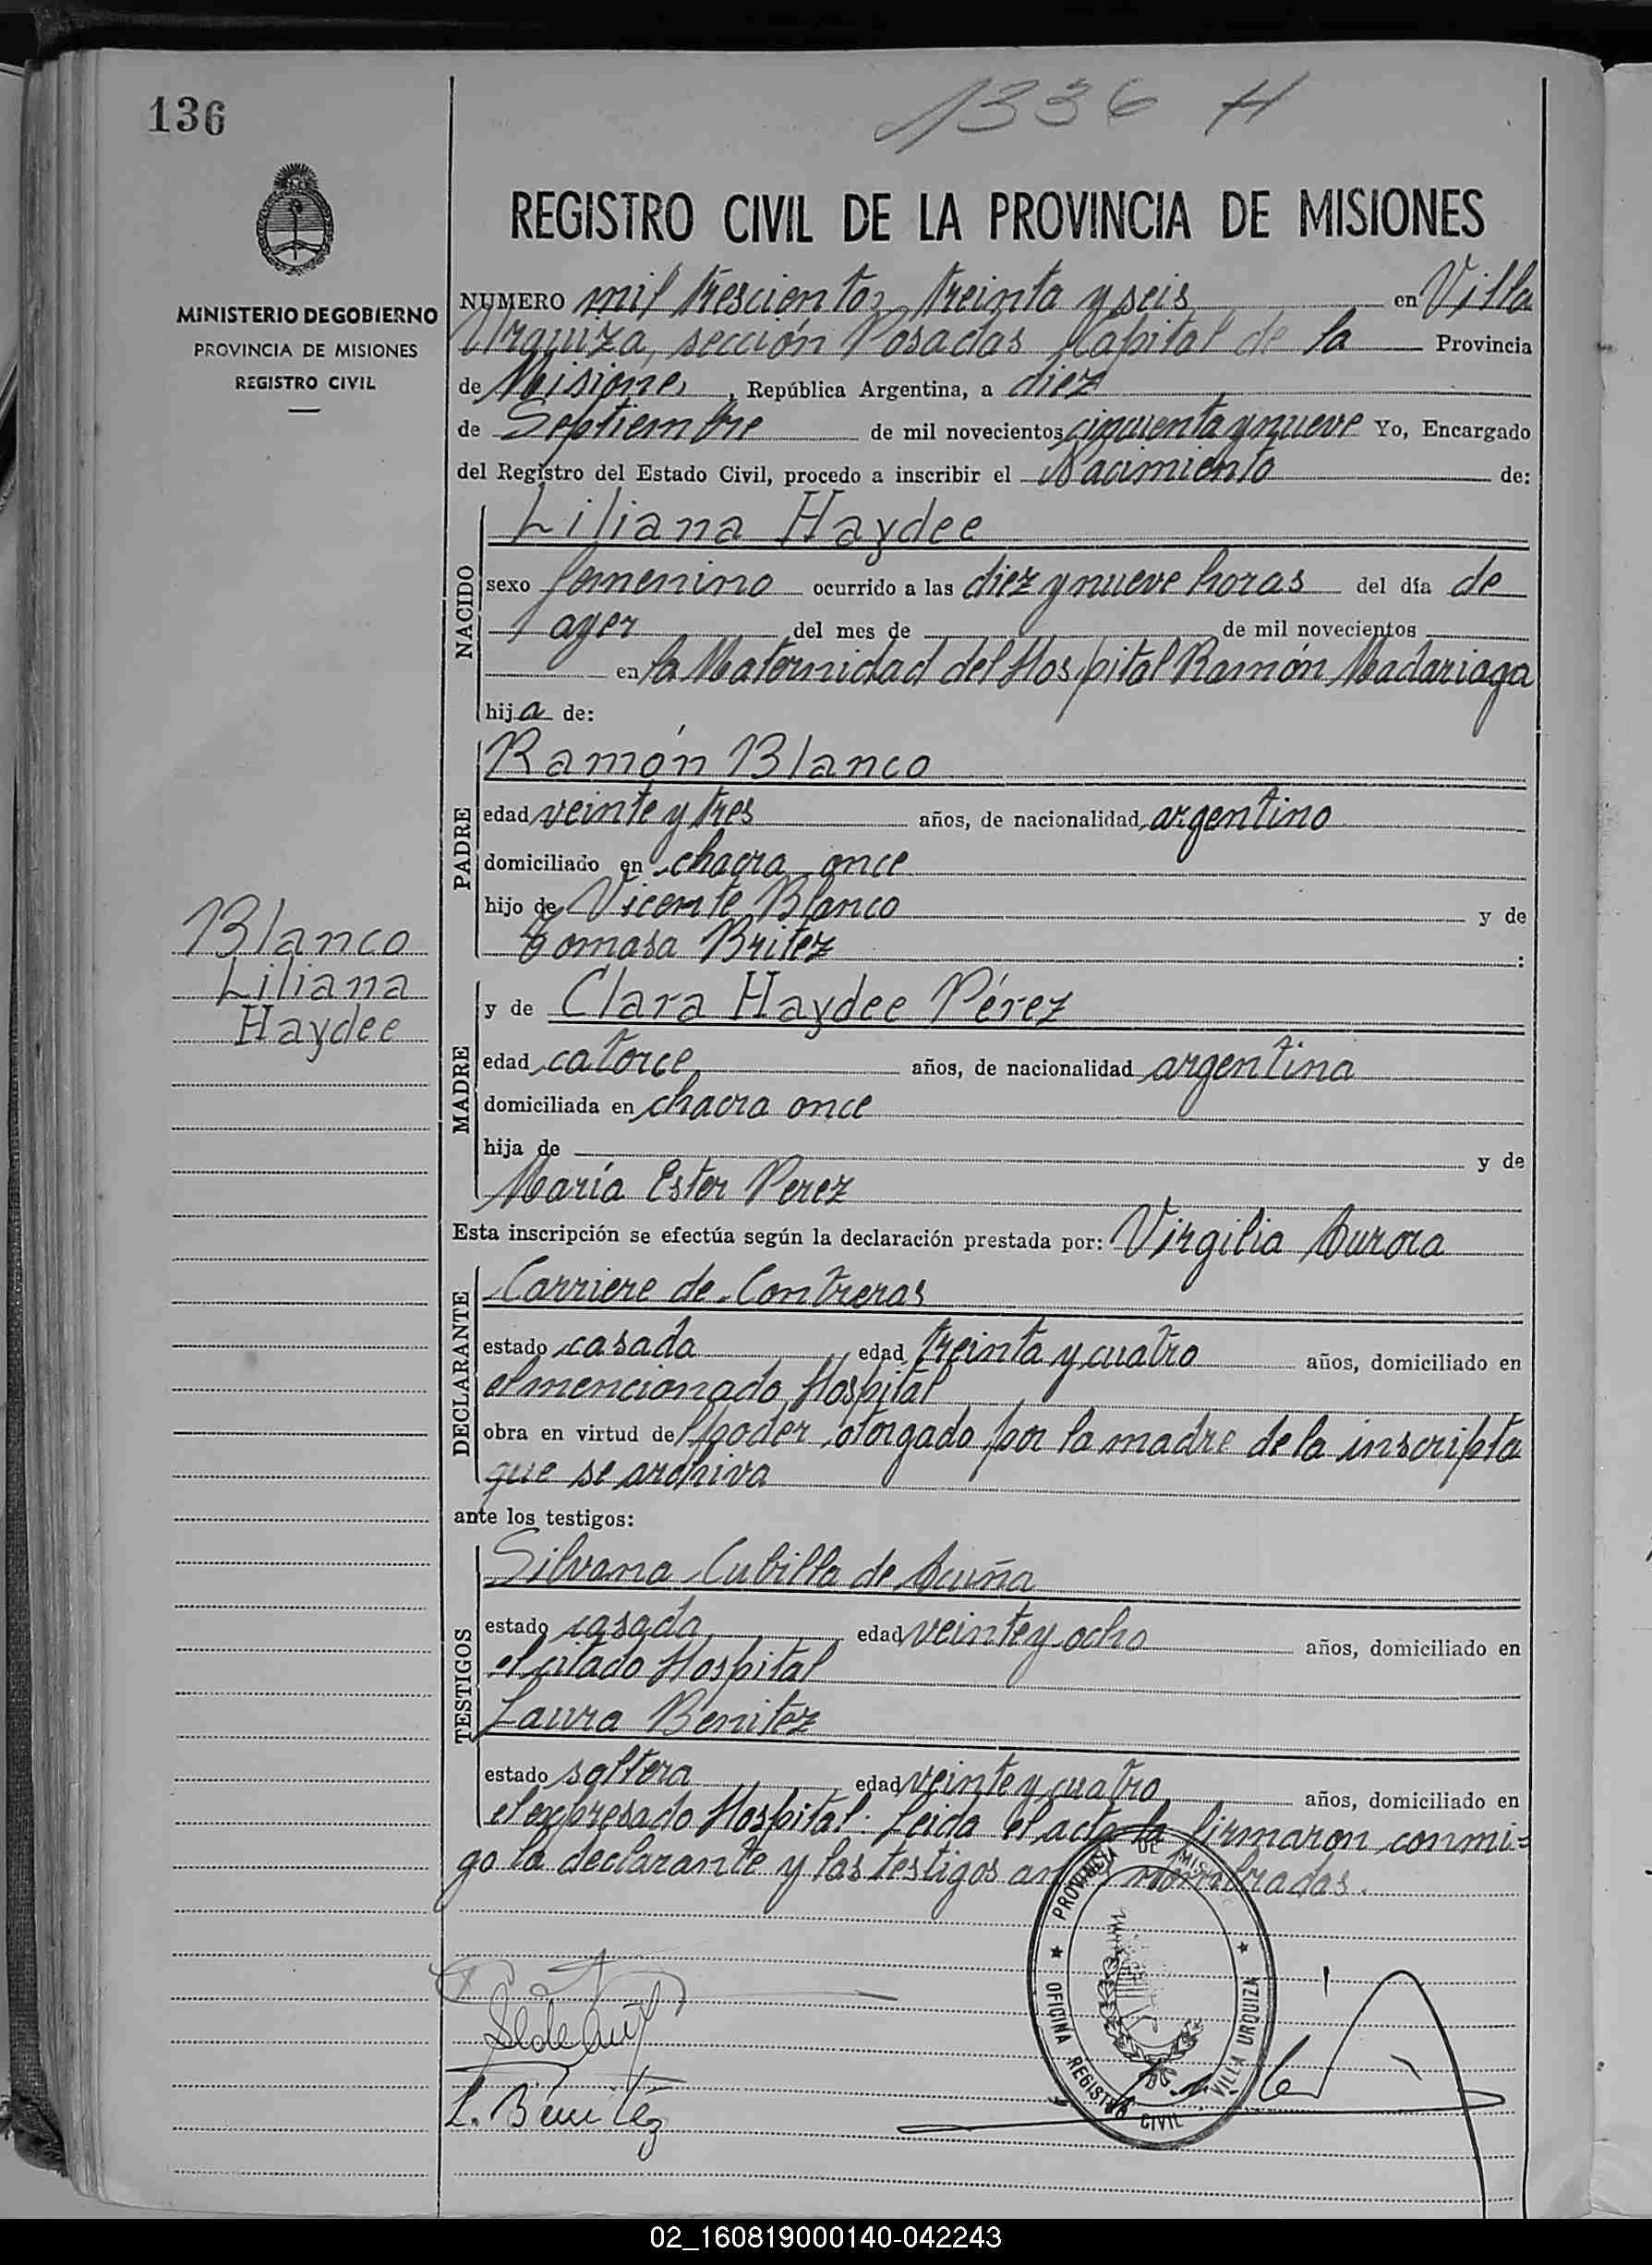 136
1336 H
REGISTRO CIVIL DE LA PROVINCIA DE MISIONES
MINISTERIO DE GOBIERNO
PROVINCIA DE MISIONES
REGISTRO CIVIL
NUMERO mil trescientos treinta y seis en Villa
Urquiza, sección Posadas Capital de la Provincia
de Misiones, República Argentina, a diez
de Septiembre de mil novecientos cincuenta y nueve Yo, Encargado
del Registro del Estado Civil, procedo a inscribir el Nacimiento de:
NACIDO
Liliana Haydee
sexo femenino ocurrido a las diez y nueve horas del día de
ayer del mes de de mil novecientos
en la Maternidad del Hospital Ramón Madariaga
hija de:
PADRE
Ramón Blanco
edad veinte y tres años, de nacionalidad argentino
domiciliado en chacra once
hijo de Vicente Blanco y de
Tomasa Britez:
Blanco
Liliana
Haydee
MADRE
y de Clara Haydee Pérez
edad catorce años, de nacionalidad argentina
domiciliada en chacra once
hija de y de
María Ester Perez
Esta inscripción se efectúa según la declaración prestada por: Virgilia Aurora
DECLARANTE
Carriere de Contreras
estado casada edad treinta y cuatro años, domiciliado en
el mencionado Hospital
obra en virtud del poder otorgado por la madre de la inscripta
que se archiva
ante los testigos:
TESTIGOS
Silvana Cubilla de Acuña
estado casada edad veinte y ocho años, domiciliado en
el citado Hospital
Laura Benitez
estado soltera edad veinte y cuatro años, domiciliado en
el expresado Hospital. Leida el acta la firmaron conmi-
go la declarante y las testigos nombradas.
PROVINCIA DE MISIONES
OFICINA REGISTRO CIVIL VILLA URQUIZA
L. Benitez
02_160819000140-042243